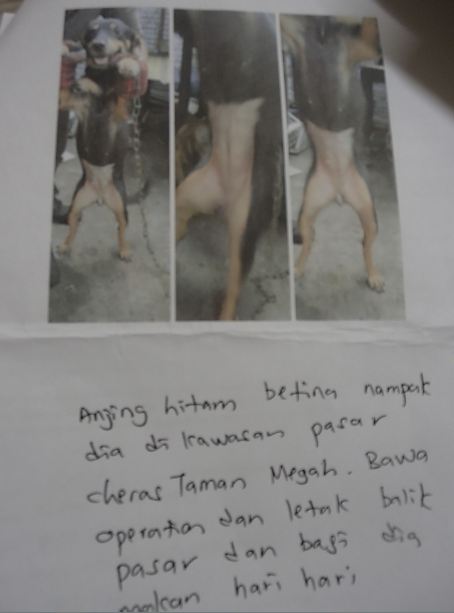 Anjing hitam betina nampak
dia di kawasan pasar
cheras Taman Megah. Bawa
operation dan letak balik
pasar dan bagi dia
makan hari hari